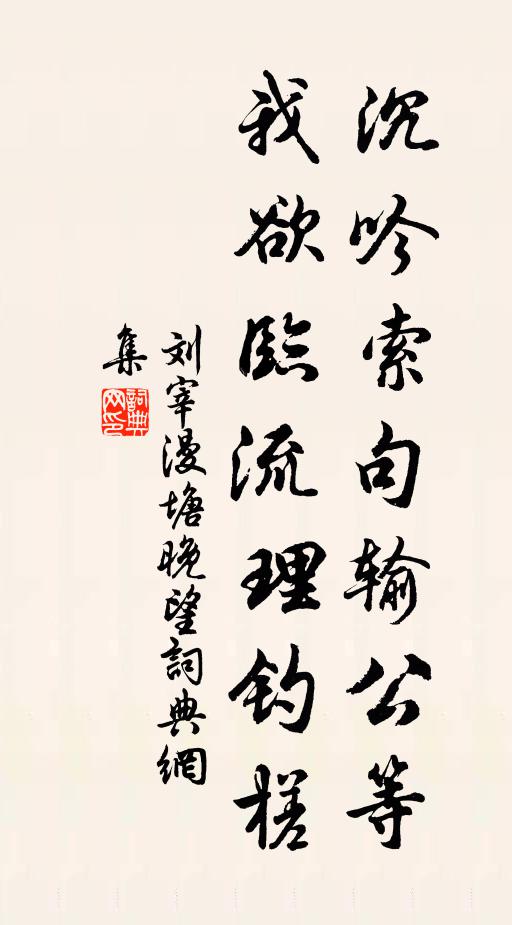 沉吟索句输公等
我欲臨流理钓槎
刘宰漫塘晚望詞典網
集
詞典网印